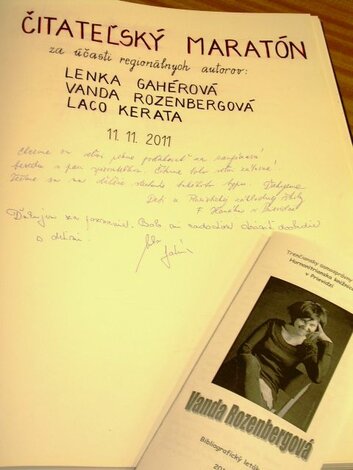 ČITATEĽSKÝ MARATÓN
za účasti regionálnych autorov:
LENKA GAHÉROVÁ
VANDA ROZENBERGOVÁ
LACO KERATA
11. 11. 2011
Chceme sa veľmi pekne poďakovať za
besedu s pani spisovateľkou. Bolo veľmi
Tešíme sa na ďalšie stretnutia takéhoto typu. Ďakujeme.
Deti z
F. v Prievidzi
Ďakujem za pozvanie. Bolo mi radosťou stráviť doobedie
s deťmi.
Trenčiansky samosprávny
Hornonitrianska knižnica
v Prievidzi
Vanda Rozenbergová
Bibliografický leták